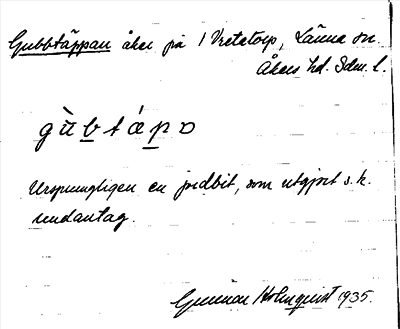 Gubbtäppan åker på 1 Vretstorp, Länna sn.
Åkers hd. Sdm. l.
gùbtápɒ
Ursprungligen en jordbit, som utgjort s.k.
undantag.
Gunnar Holmquist 1935.